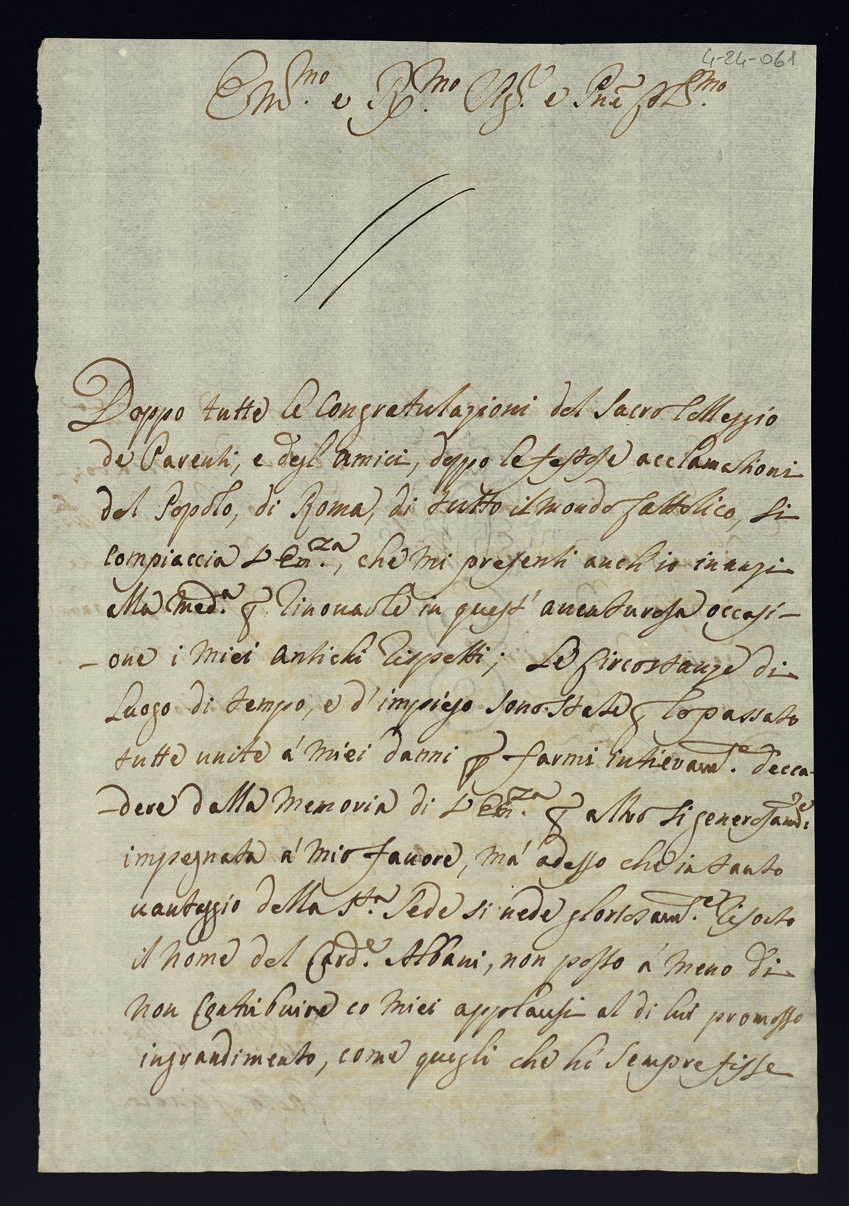 4-24-061
Em.mo e R.mo Sig.r e Pne Pr̄on.mo
Doppo tutte le Congratulazioni del Sacro Colleggio
de Parenti, e degl'Amici, doppo le festose acclamationi
del Popolo, di Roma, di tutto il mondo Cattolico, si
compiaccia V Em.za, che mi presenti anch'io inanzi
alla Med.a p. rinovarle in quest' auenturosa occasi-
-one i miei antichi rispetti; Le Circostanze di
Luogo di tempo, e d'impiego sono state p lo passato
tutte unite a' miei danni p farmi intieram.e decca-
-dere dalla memoria di V Em.za p altro si generosam.e
impegnata a' mio fauore, mà adesso che in tanto
uantaggio della S.ta Sede si uede gloriosam.e risorto
il nome del Card.e Albani, non posso a' meno di
non Contribuire co miei applausi al di lui promosso
ingrandimento, come quegli che hò sempre fisse